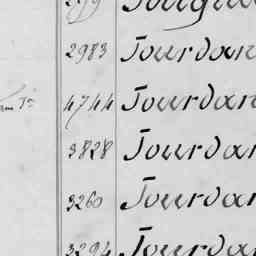 2983 Jourdan
4744 Jourdan
3828 Jourdan
3260 Jourdan
3294 Jourdan